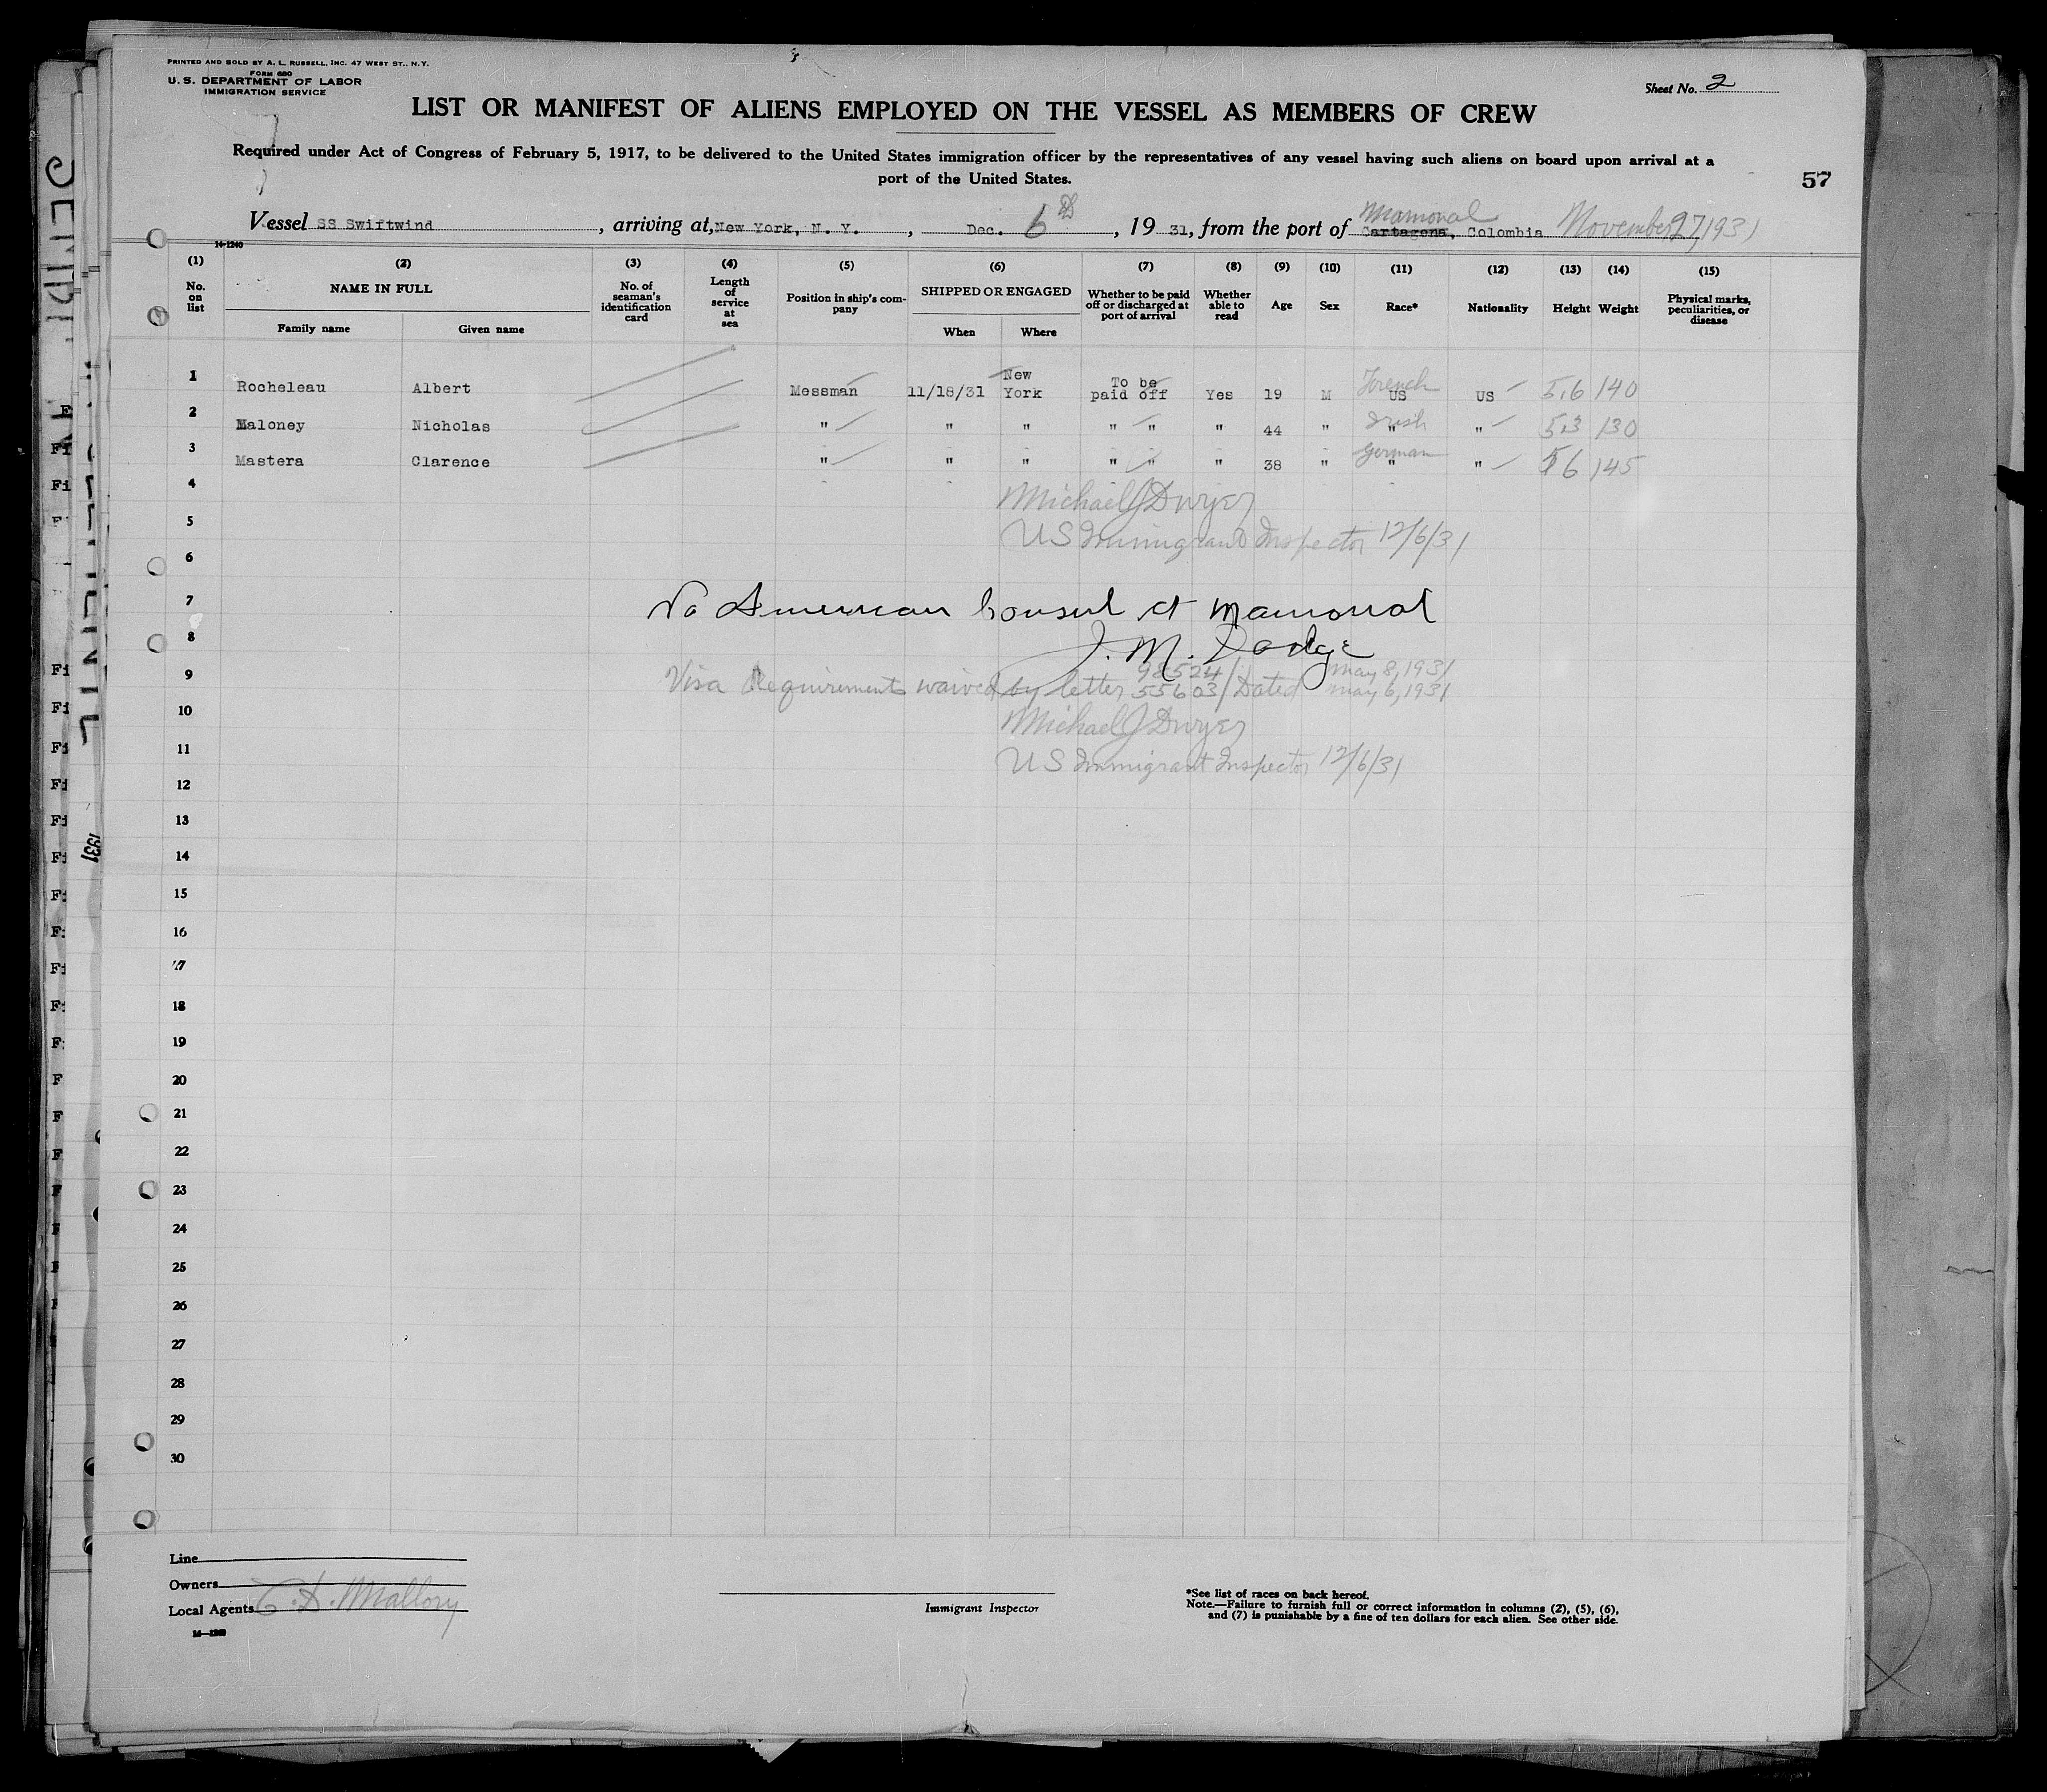 PRINTED AND SOLD BY A. L. RUSSELL, INC. 47 WEST ST., N.Y.
FORM 680
U. S. DEPARTMENT OF LABOR
IMMIGRATION SERVICE
Sheet No. 2
LIST OR MANIFEST OF ALIENS EMPLOYED ON THE VESSEL AS MEMBERS OF CREW
Required under Act of Congress of February 5, 1917, to be delivered to the United States immigration officer by the representatives of any vessel having such aliens on board upon arrival at a
port of the United States.
57
Vessel SS Swiftwind, arriving at, New York, N. Y., Dec. 6th, 19 31, from the port of Cartagena, Mamonal Colombia November 27, 1931
14-1240
(1) (2) (3) (4) (5) (6) (7) (8) (9) (10) (11) (12) (13) (14) (15)
No. on list NAME IN FULL Family name Given name No. of seaman's identification card Length of service at sea Position in ship's company SHIPPED OR ENGAGED When Where Whether to be paid off or discharged at port of arrival Whether able to read Age Sex Race* Nationality Height Weight Physical marks, peculiarities, or disease
1 Rocheleau Albert Messman 11/18/31 New York To be paid off Yes 19 M US French US 5,6 140
2 Maloney Nicholas " " " " " " 44 " " Irish " 5,3 130
3 Mastera Clarence " " " " " " 38 " " German " 5 6 145
4 Michael J Dwyer
5 US Immigrant Inspector 12/6/31
6
7 No American Consul at Mamonal
8 J. M. Dodge
98524 / May 8, 1931
9 Visa Requirements waived by letter 55603 / Dated May 6, 1931
10 Michael J Dwyer
11 US Immigrant Inspector 12/6/31
12
13
14
15
16
17
18
19
20
21
22
23
24
25
26
27
28
29
30
Line
Owners
Local Agents C. D. Mallory
Immigrant Inspector
*See list of races on back hereof.
Note.—Failure to furnish full or correct information in columns (2), (5), (6),
and (7) is punishable by a fine of ten dollars for each alien. See other side.
1931